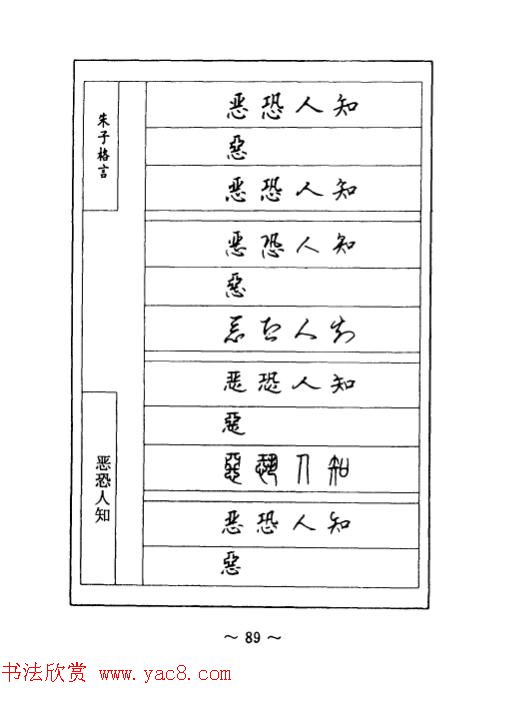 朱子格言
恶恐人知
恶恐人知
惡
恶恐人知
恶恐人知
惡
恶恐人知
恶恐人知
惡
惡恐人知
恶恐人知
惡
～ 89 ～
书法欣赏 www.yac8.com